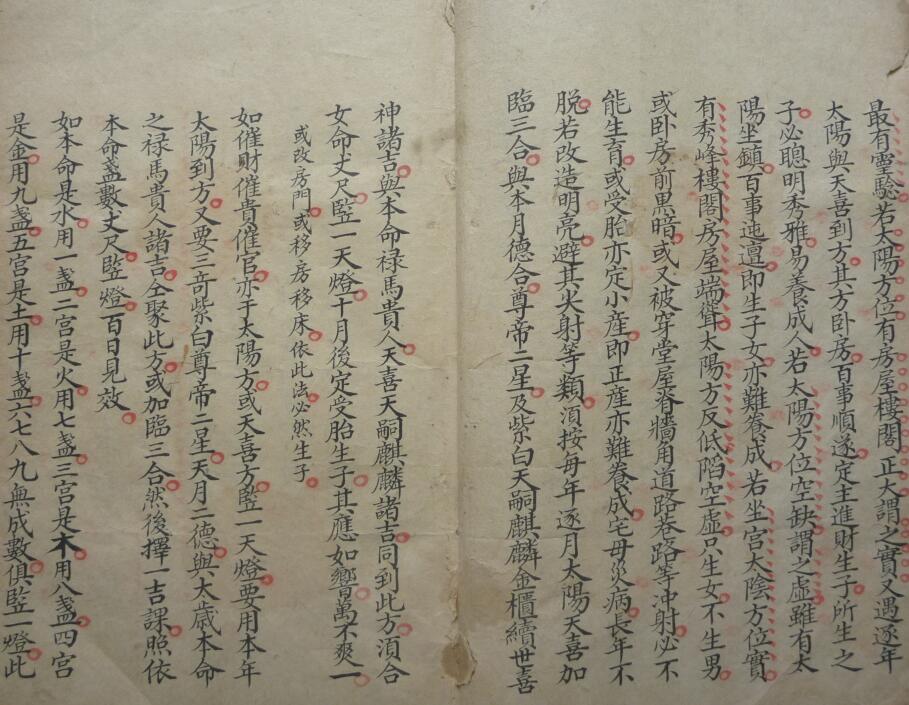 最有靈驗若太陽方位有房屋樓閣正大謂之實又遇逐年
太陽與天喜到方其方卧房百事順遂定主進財生子所生之
子必聰明秀雅易養成人若太陽方位空缺謂之虛雖有太
陽坐鎮百事迍邅即生子女亦難養成若坐宮太陰方位實
有秀峰樓閣房屋端聳太陽方反低陷空虛只生女不生男
或卧房前黑暗或又被穿堂屋脊牆角道路巷路等冲射必不
能生育或受胎亦定小産即正産亦難養成宅母災病長年不
脱若改造明亮避其尖射等類湏按每年逐月太陽天喜加
臨三合與本月德合尊帝二星及紫白天嗣麒麟金櫃續世喜
神諸吉與本命禄馬貴人天喜天嗣麒麟諸吉同到此方湏合
女命丈尺竪一天燈十月後定受胎生子其應如響萬不爽一
或改房門或移房移床依此法必然生子
如催財催貴催官亦于太陽方或天喜方竪一天燈要用本年
太陽到方又要三竒紫白尊帝二星天月二德與太歲本命
之禄馬貴人諸吉仝聚此方或加臨三合然後擇一吉課照依
本命盞數丈尺竪燈百日見效
如本命是水用一盞二宮是火用七盞三宮是木用八盞四宮
是金用九盞五宮是土用十盞六七八九無成數俱竪一燈此